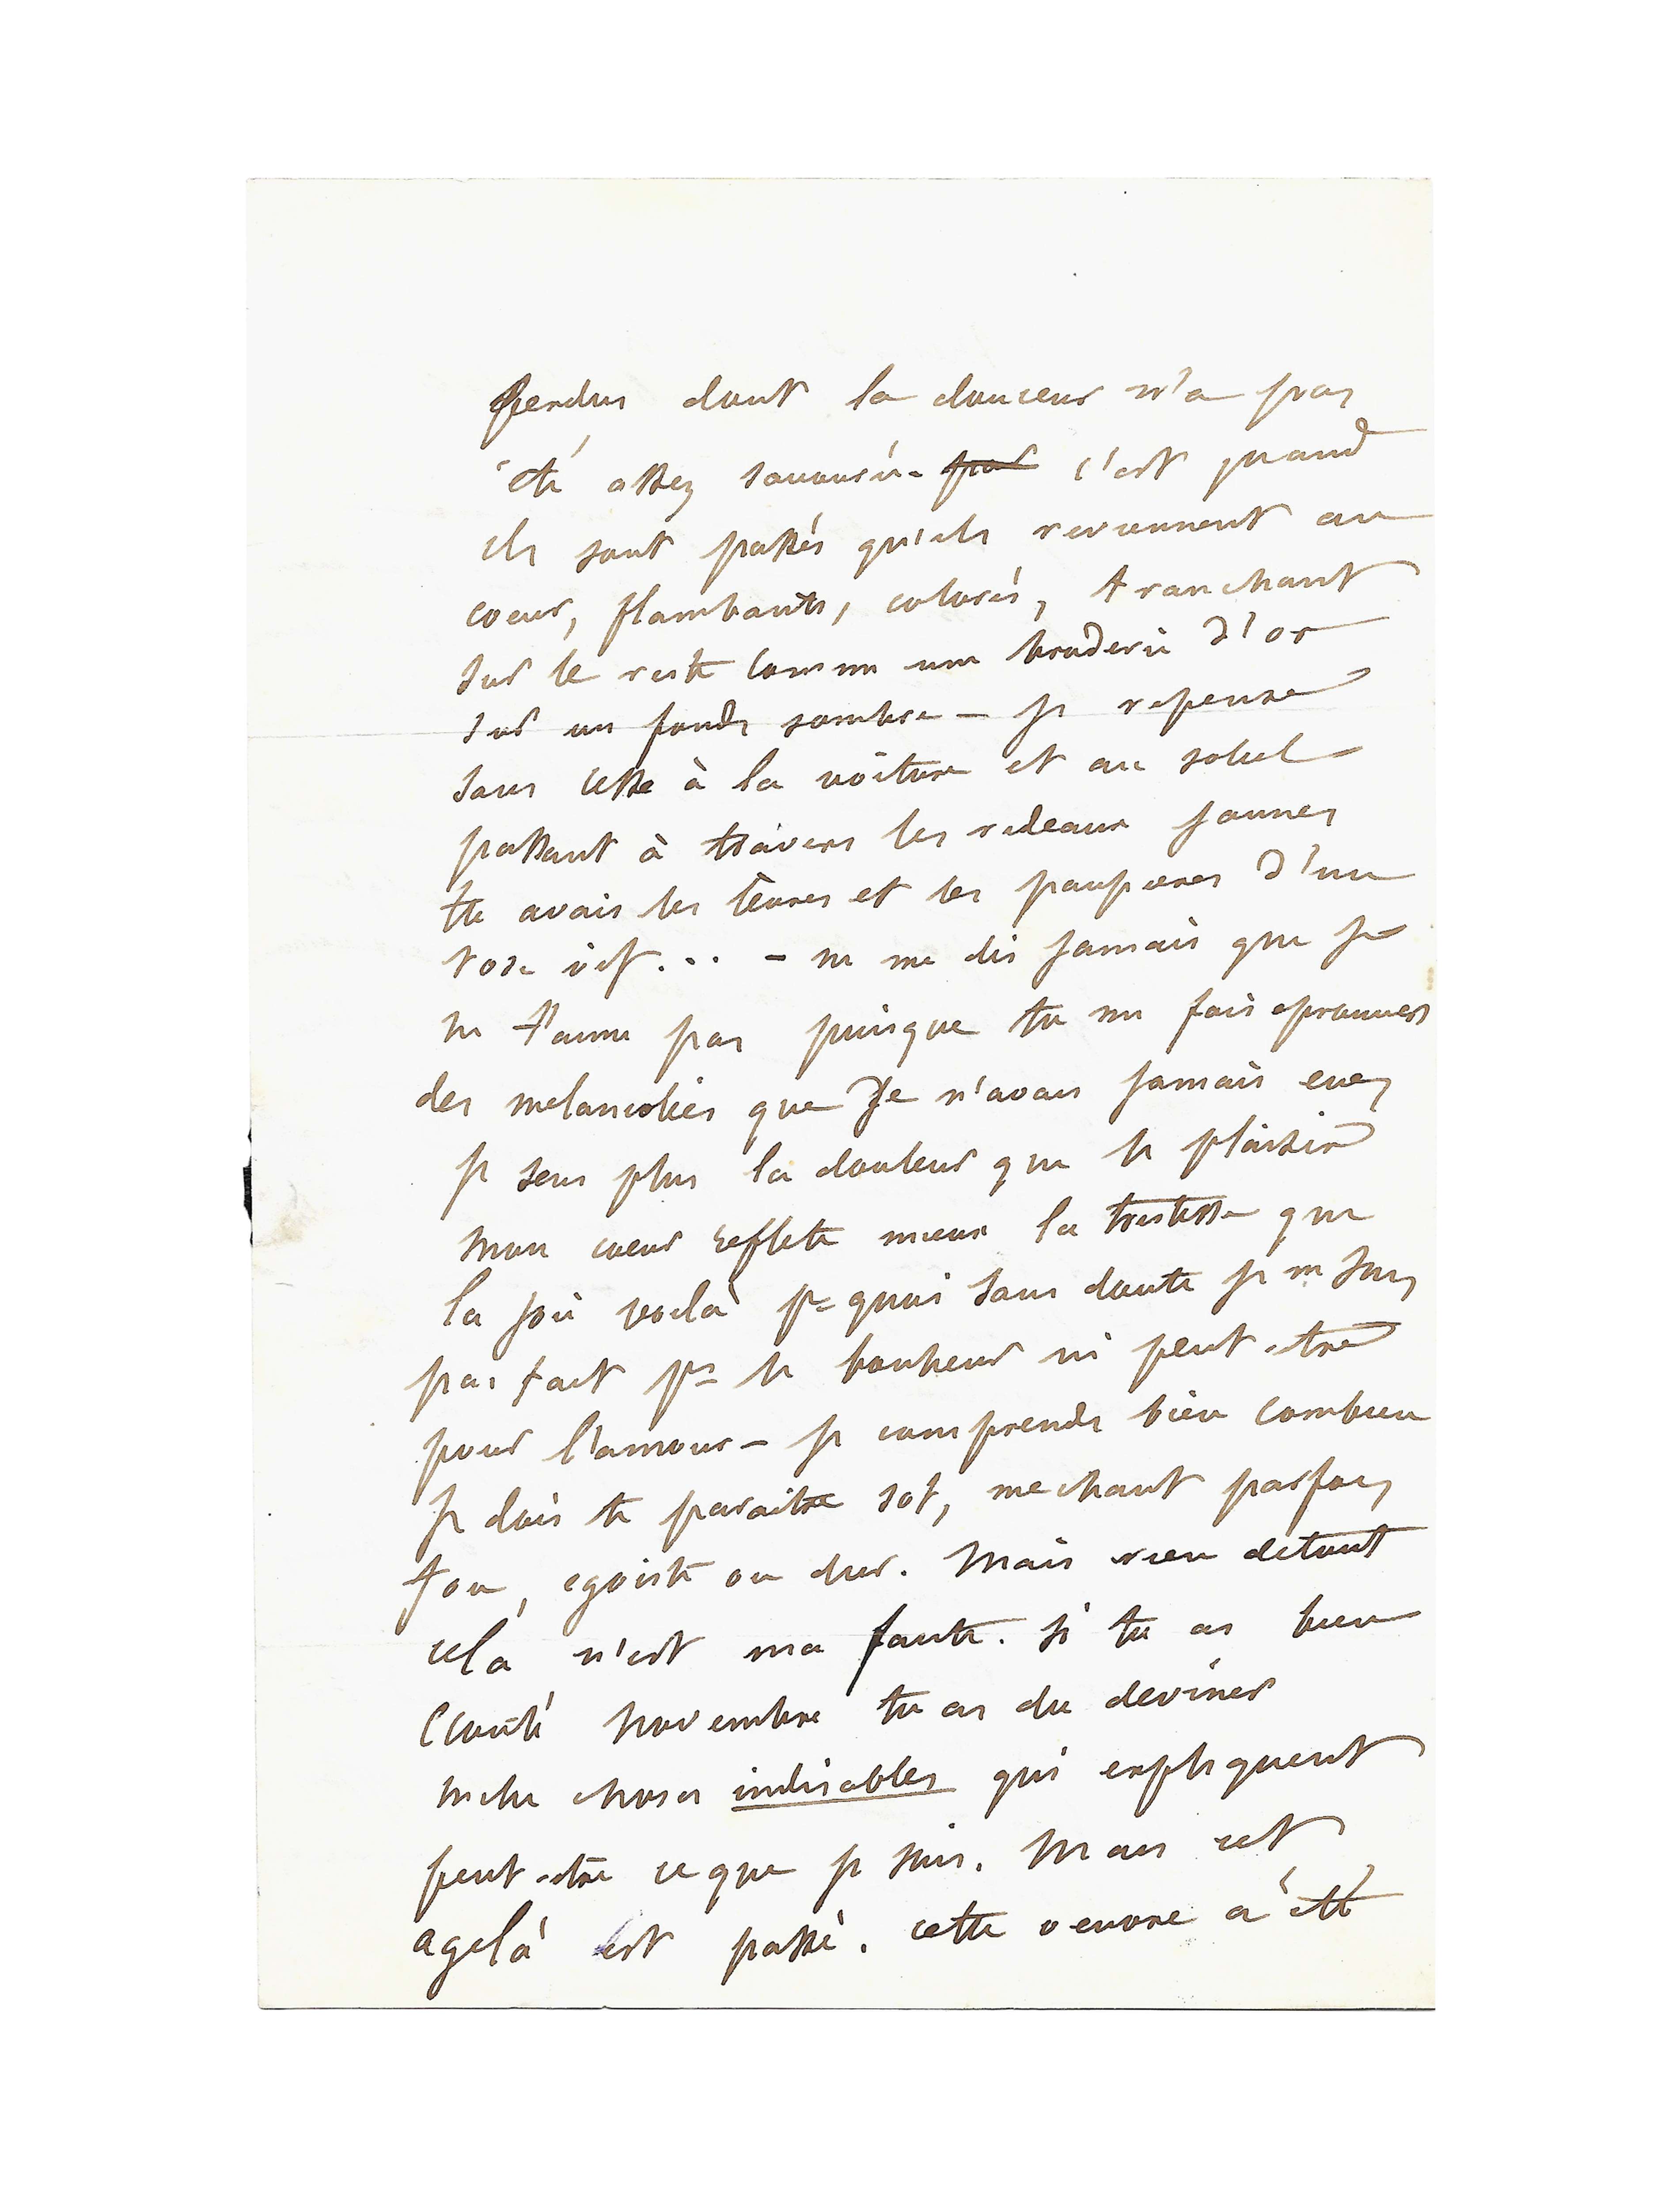 perdus dont la douceur n'a pas
été assez savourée. ~~par~~ c'est quand
ils sont passés qu'ils reviennent au
coeur, flambants, colorés, tranchant
sur le reste comme une broderie d'or
sur un fonds sombre — je repense
sans cesse à la voiture et au soleil
passant à travers les rideaux jaunes
tu avais les lèvres et les paupieres d'un
rose vif... - ne me dis jamais que je
ne t'aime pas puisque tu me fais eprouver
des melancolies que je n'avais jamais eues
je sens plus la douleur que le plaisir
mon coeur reflete mieux la tristesse que
la joie voilà pr quoi sans doute je ne suis
pas fait pr le bonheur ni peut-etre
pour l'amour — je comprends bien combien
je dois te paraitre sot, mechant parfois
fou, egoiste ou dur. Mais rien detout
cela n'est ma faute. si tu as bien
écouté novembre tu as du deviner
mille choses indisables qui expliquent
peut-etre ce que je suis. Mais cet
agelà est passé. cette oeuvre a été